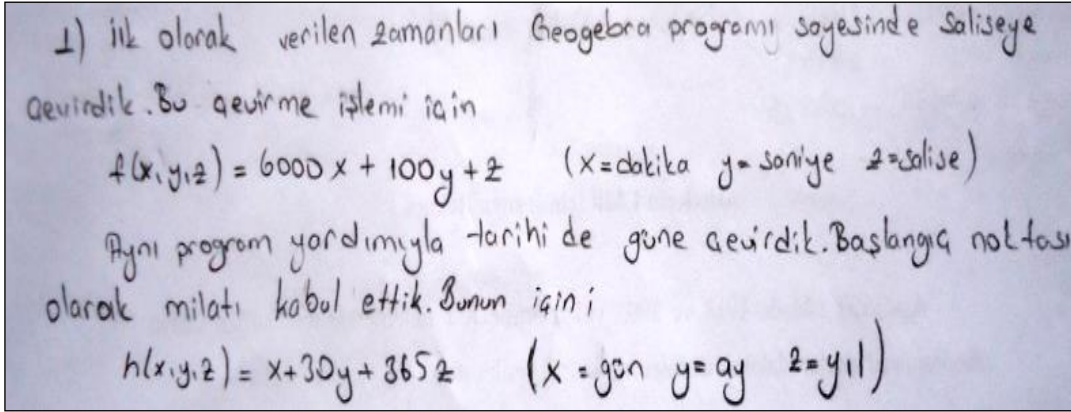 1) İlk olarak verilen zamanları Geogebra programı sayesinde saliseye
çevirdik. Bu çevirme işlemi için
f(x,y,z) = 6000x + 100y + z (x=dakika y=saniye z=salise)
Aynı program yardımıyla tarihi de güne çevirdik. Başlangıç noktası
olarak milatı kabul ettik. Bunun için;
h(x,y,z) = x+30y+365z (x=gün y=ay z=yıl)